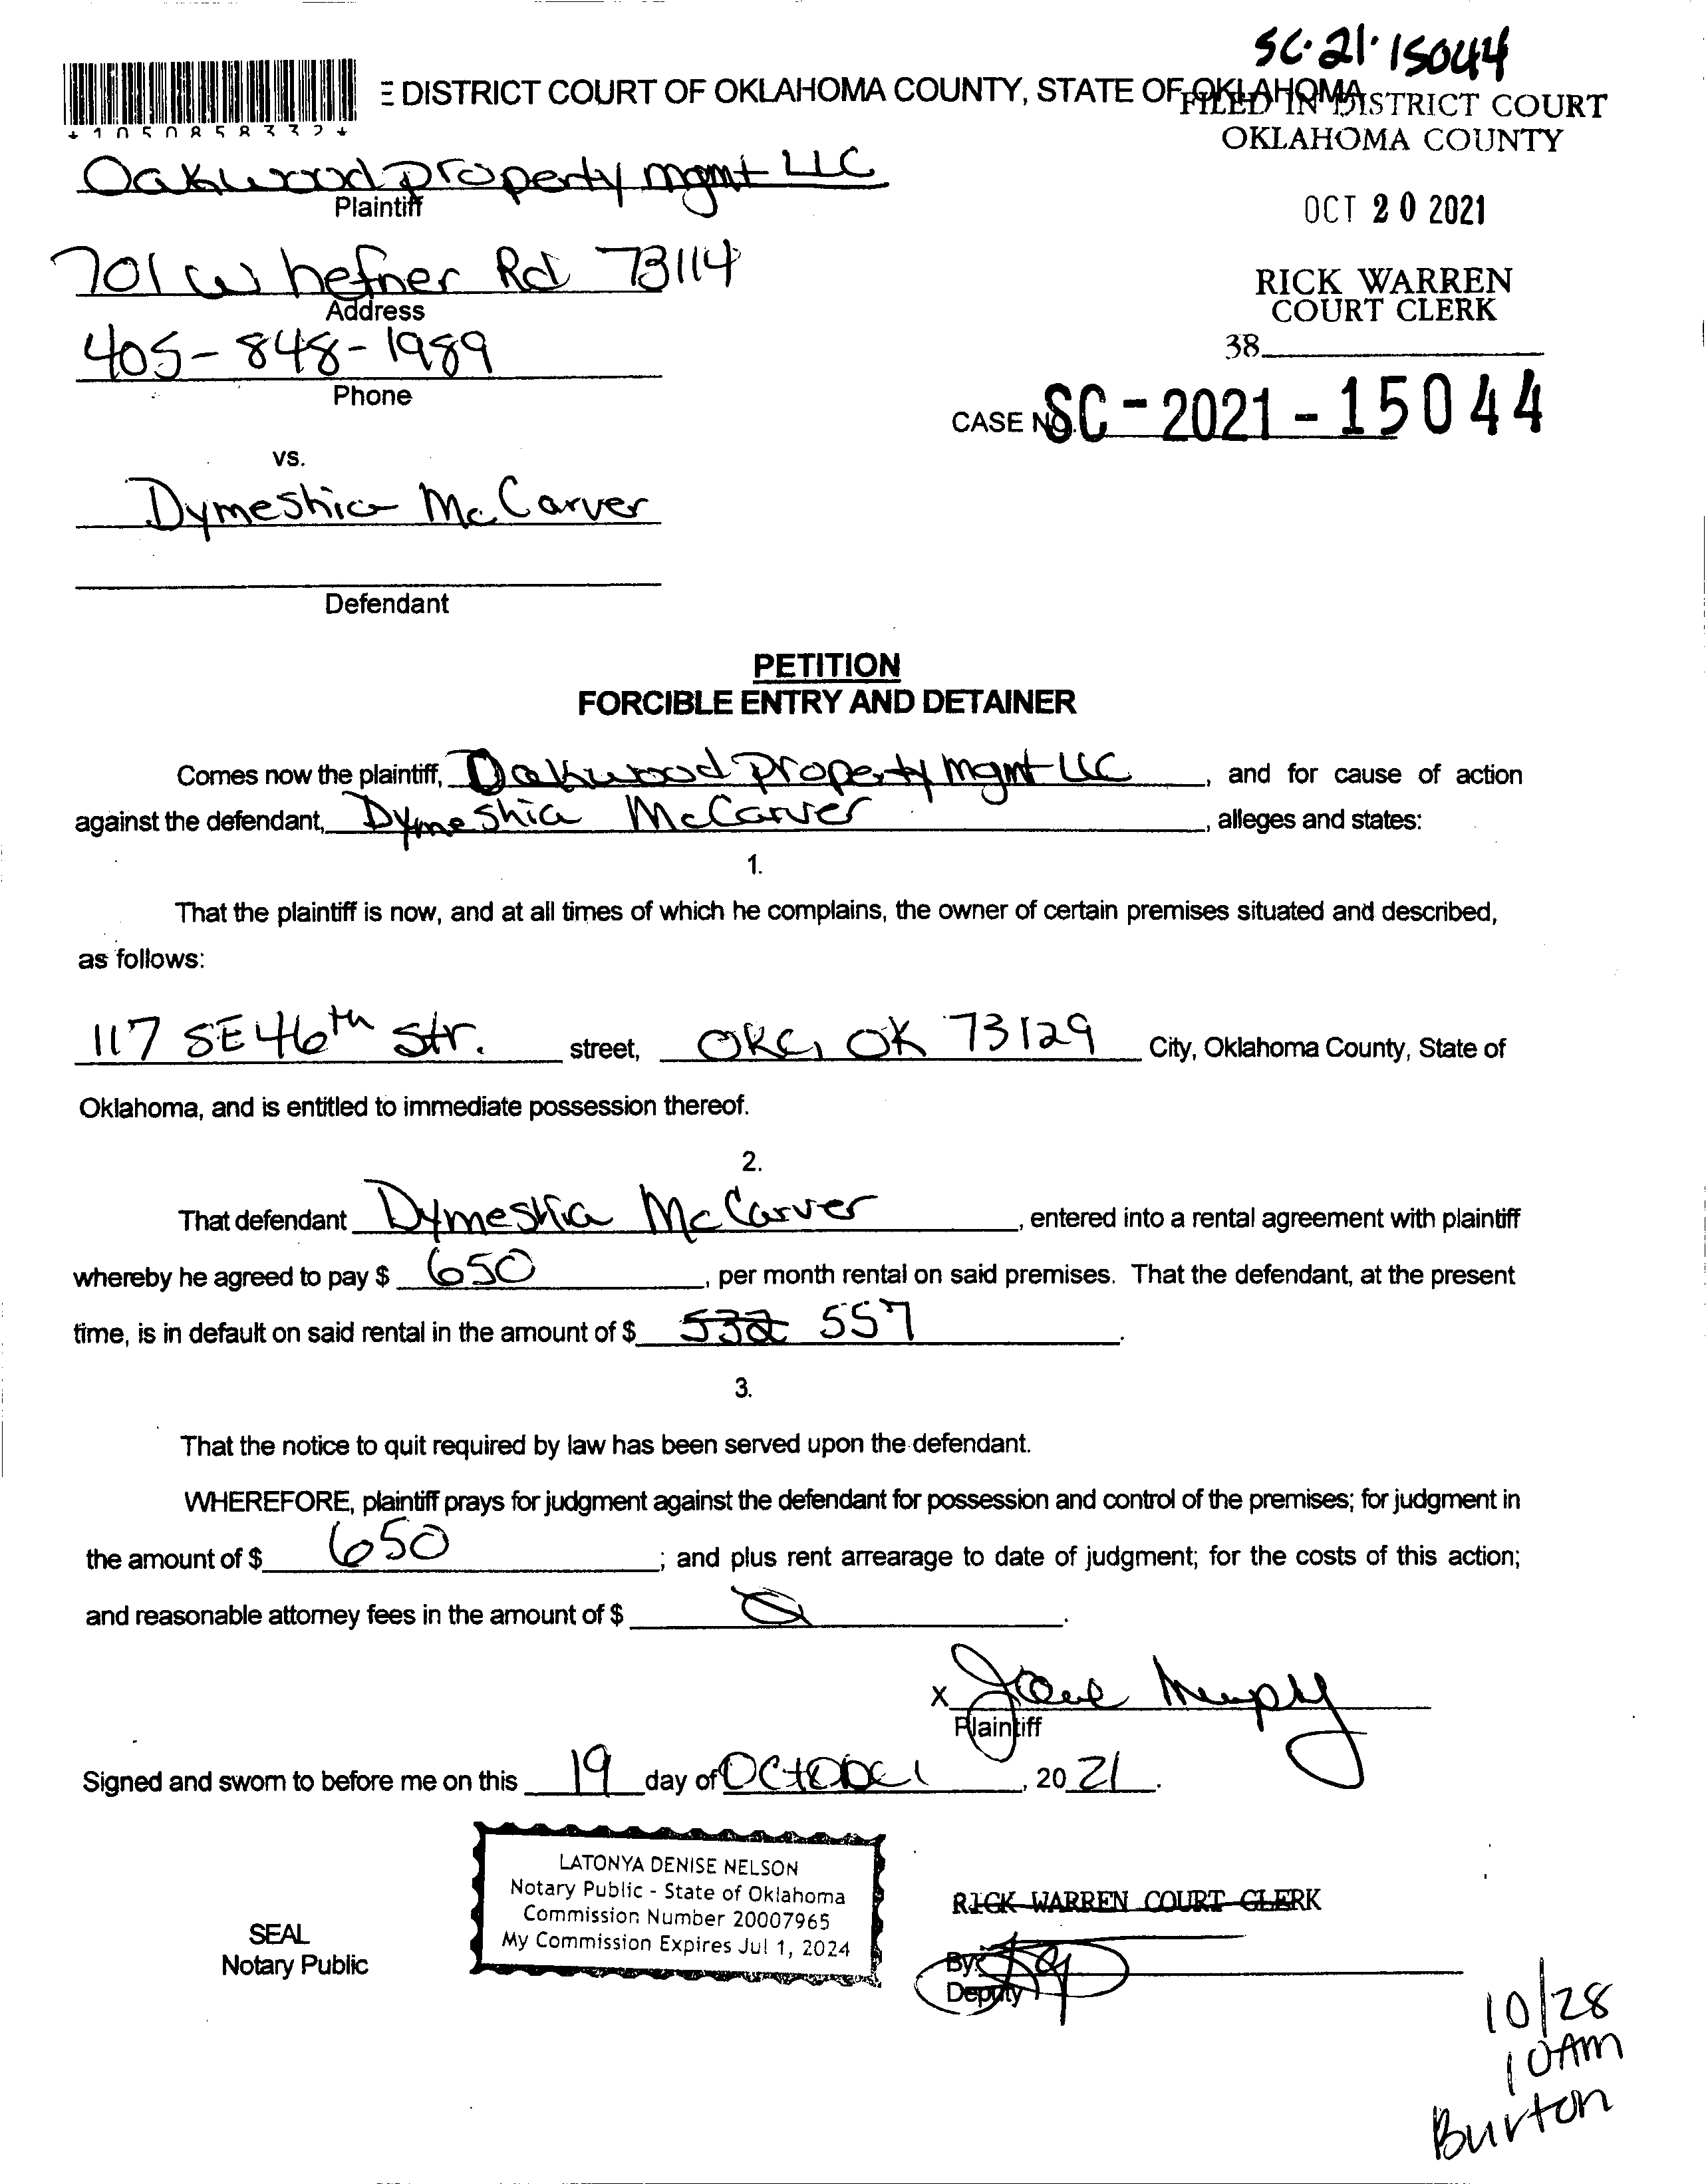 SC-21-15044
E DISTRICT COURT OF OKLAHOMA COUNTY, STATE OF OKLAHOMA
FILED IN DISTRICT COURT
OKLAHOMA COUNTY
*1050858332*
Oakwood property mgmt LLC
Plaintiff
OCT 20 2021
701 W hefner Rd 73114
Address
RICK WARREN
COURT CLERK
405-848-1989
38
Phone
CASE NO. SC-2021-15044
vs.
Dymeshia McCarver
Defendant
PETITION
FORCIBLE ENTRY AND DETAINER
Comes now the plaintiff, Oakwood property mgmt LLC, and for cause of action
against the defendant, Dymeshia McCarver, alleges and states:
1.
That the plaintiff is now, and at all times of which he complains, the owner of certain premises situated and described,
as follows:
117 SE 46th Str. street, OKC, OK 73129 City, Oklahoma County, State of
Oklahoma, and is entitled to immediate possession thereof.
2.
That defendant Dymeshia McCarver, entered into a rental agreement with plaintiff
whereby he agreed to pay $ 650, per month rental on said premises. That the defendant, at the present
time, is in default on said rental in the amount of $ 532 557.
3.
That the notice to quit required by law has been served upon the defendant.
WHEREFORE, plaintiff prays for judgment against the defendant for possession and control of the premises; for judgment in
the amount of $ 650; and plus rent arrearage to date of judgment; for the costs of this action;
and reasonable attorney fees in the amount of $ Ø.
X
Plaintiff
Signed and sworn to before me on this 19 day of October, 2021.
LATONYA DENISE NELSON
Notary Public - State of Oklahoma
Commission Number 20007965
My Commission Expires Jul 1, 2024
SEAL
Notary Public
RICK WARREN COURT CLERK
By:
Deputy
10/28
10Am
Burton